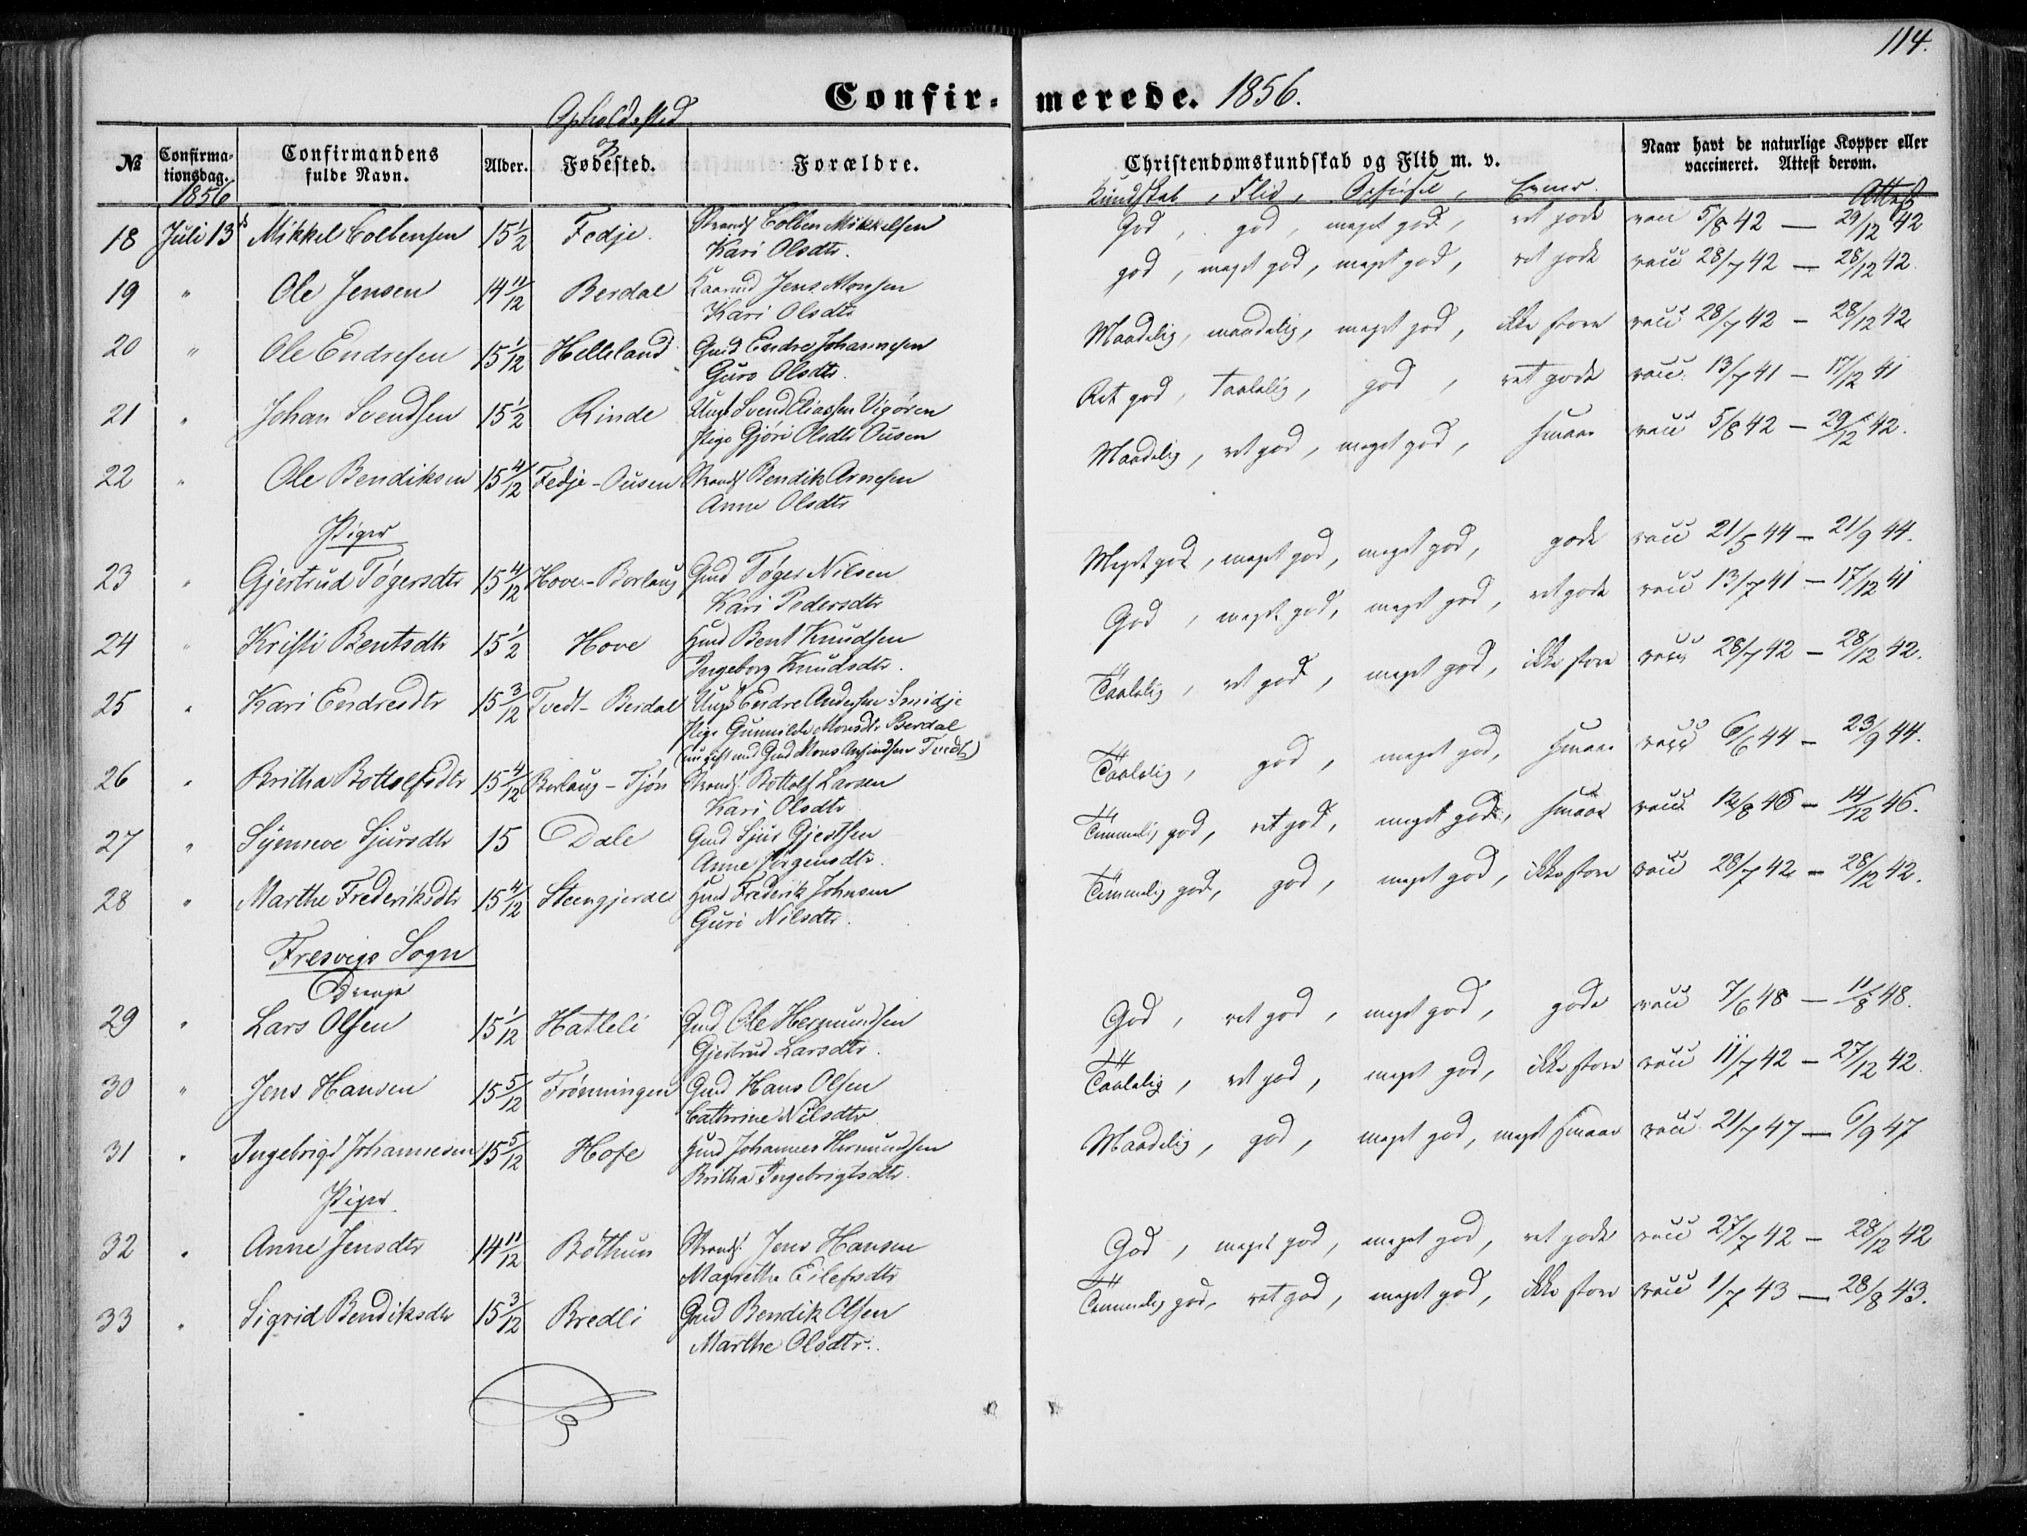 114.
Confirmerede. 1856.
Opholdssted og
№ Confirmationsdag. Confirmandens fulde Navn. Alder. Fødested. Forældre. Christendomskundskab og Flid m. v. Naar havt de naturlige Kopper eller vaccineret. Attest derom.
1856 Kundskab, Flid, Opførsel, Evner. Attest
18 Juli 13 Mikkel Colbensen 15 1/2 Fedje. Strands Colben Mikkelsen God, god, meget god, ret gode vacc 5/8 42 — 29/12 42
Kari Olsdtr.
19 " Ole Jensen 14 11/12 Berdal Jens Monsen god, meget god, meget god, ret gode vacc 28/7 42 — 28/12 42.
Kari Olsdtr
20 " Ole Endresen 15 1/12 Helleland Gmd Endre Johannesen Maadelig, maadelig, meget god, ikke store vacc 28/7 42 — 28/12 42
Guro Olsdtr.
21 " Johan Svendsen 15 1/2 Rinde Ungk Svend Eliassen Vigøren Ret god, taalelig, god, ret gode vacc. 13/7 41 — 17/12 41
Pige Gjøri Olsdtr Ousen
22 " Ole Bendiksen 15 4/12 Fedje - Ousen Strands Bendik Arnesen Maadelig, ret god, meget god, smaae vacc 5/8 42 — 29/12 42.
Anne Olsdtr
Piger
23 " Gjertrud Tøgersdtr 15 4/12 Hove - Borlaug Gmd Tøger Nilsen Meget god, meget god, meget god, gode vacc 21/5 44 — 21/9 44.
Kari Pedersdtr
24 " Kristi Bentsdtr 15 1/2 Hove Hmd Bent Knudsen God, meget god, meget god, ret gode vacc 13/7 41 — 17/12 41
Ingeborg Knudsdtr.
25 " Kari Endresdtr 15 3/12 Tvedt - Berdal Ungk Endre Andersen Smidje Taalelig, ret god, meget god, ikke store vacc 28/7 42 — 28/12 42.
Pige Gunnilde Monsdtr Berdal
(nu gift med Gmd Mons Tvedt)
26 " Britha Bottolfsdtr 15 4/12 Borlaug - Tjøn Strands. Bottolf Larsen Taalelig, god, meget god, smaae vacc 6/6 44 — 23/9 44.
Kari Olsdtr
27 " Synneve Sjursdtr 15 Dale Gmd Sjur Gjertsen Temmelig god, ret god, meget god, smaae vacc 12/8 46 — 14/12 46.
Anne Jørgensdtr.
28 " Marthe Frederiksdtr 15 4/12 Steengjerde Hmd Frederik Johnsen Temmelig god, god, meget god, ikke store vacc 28/7 42 — 28/12 42.
Guri Nilsdtr.
Fresvigs Sogn
Drenge
29 " Lars Olsen 15 1/12 Hatleli Gmd Ole Hermundsen God, ret god, meget god, gode vacc 7/6 48 — 11/8 48.
Gjertrud Larsdtr.
30 " Jens Hansen 15 5/12 Frønningen Gmd Hans Olsen Taalelig, ret god, meget god, ikke store vacc 11/7 42 — 27/12 42.
Cathrine Nilsdtr
31 " Ingebrigt Johannesen 15 5/12 Hofe Hmd Johannes Hermundsen Maadelig, god, meget god, meget smaae vacc. 21/7 47 — 6/9 47
Britha Ingebrigtsdtr.
Piger
32 " Anne Jensdtr 14 11/12 Bøthun Strands. Jens Hansen God, meget god, meget god, ret gode vacc 27/7 42 — 28/12 42
Magrethe Eilefsdtr
33 " Sigrid Bendiksdtr 15 3/12 Bredli Gmd Bendik Olsen Temmelig god, ret god, meget god, ikke store vacc 1/7 43 — 28/8 43.
Marthe Olsdtr.